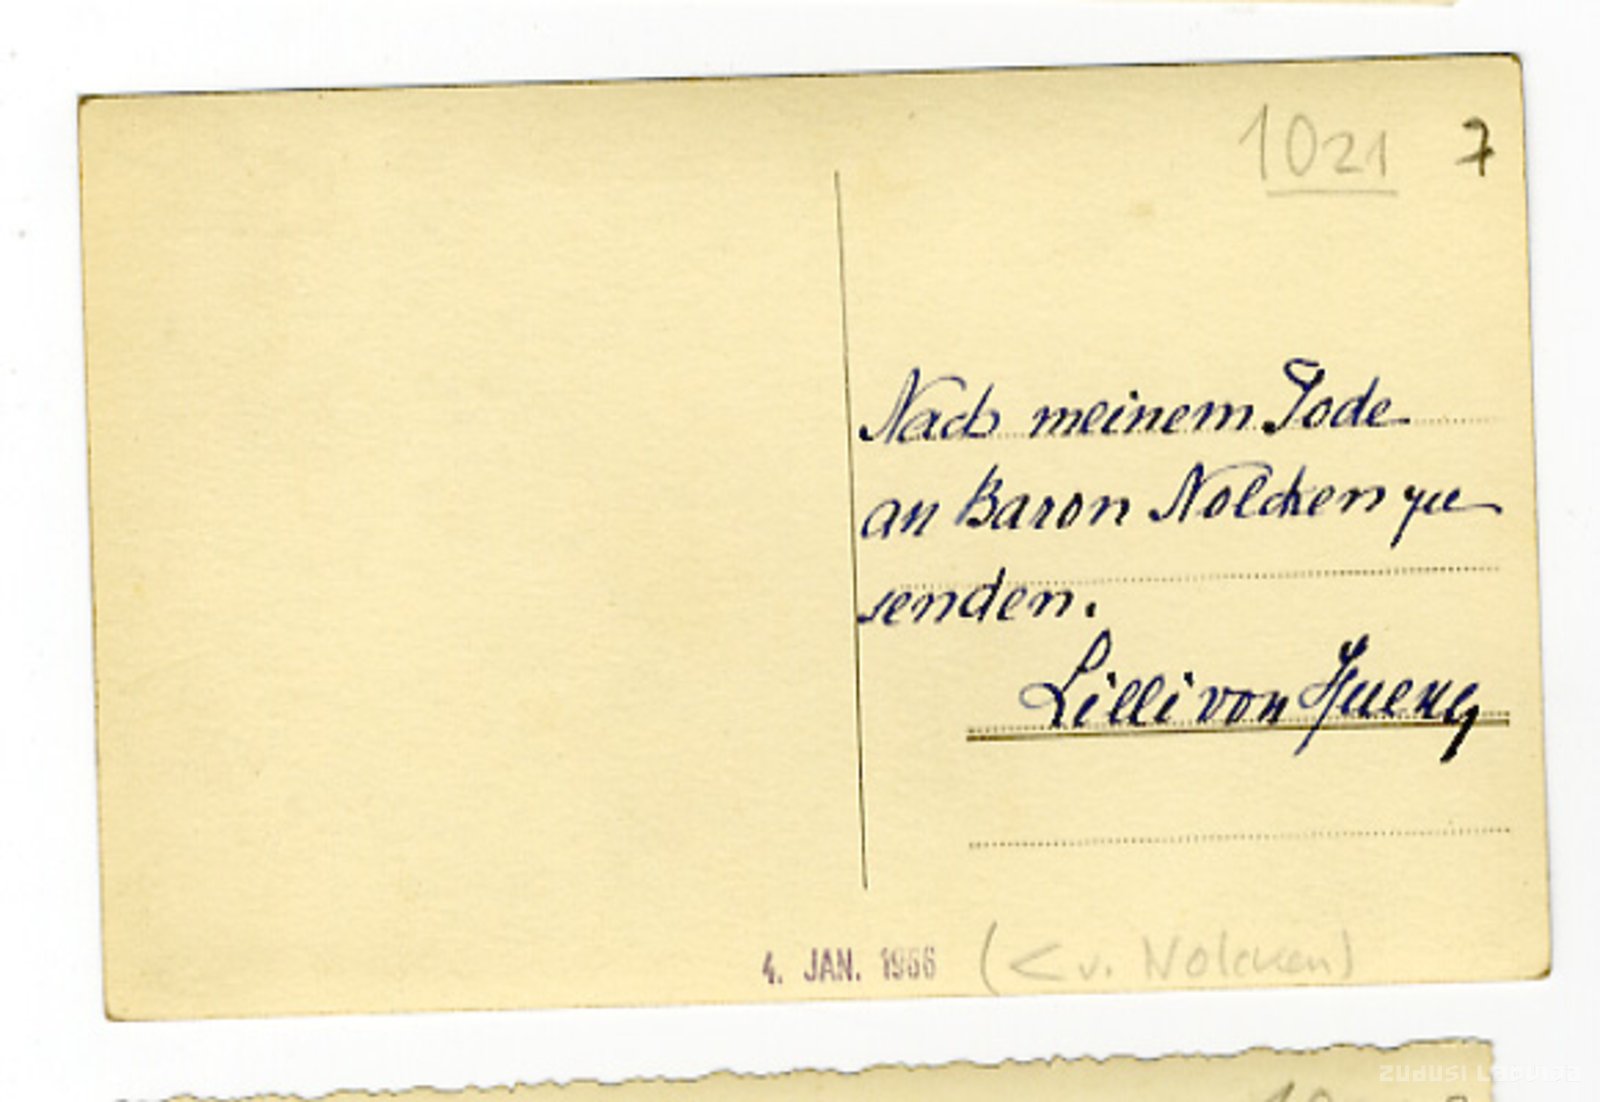 1021 7
Nach meinem Tode
an Baron Nolcken zu
senden.
Lilli von
4. JAN. 1966 (< v. Nolcken)
ZUDUSI LATVIJA